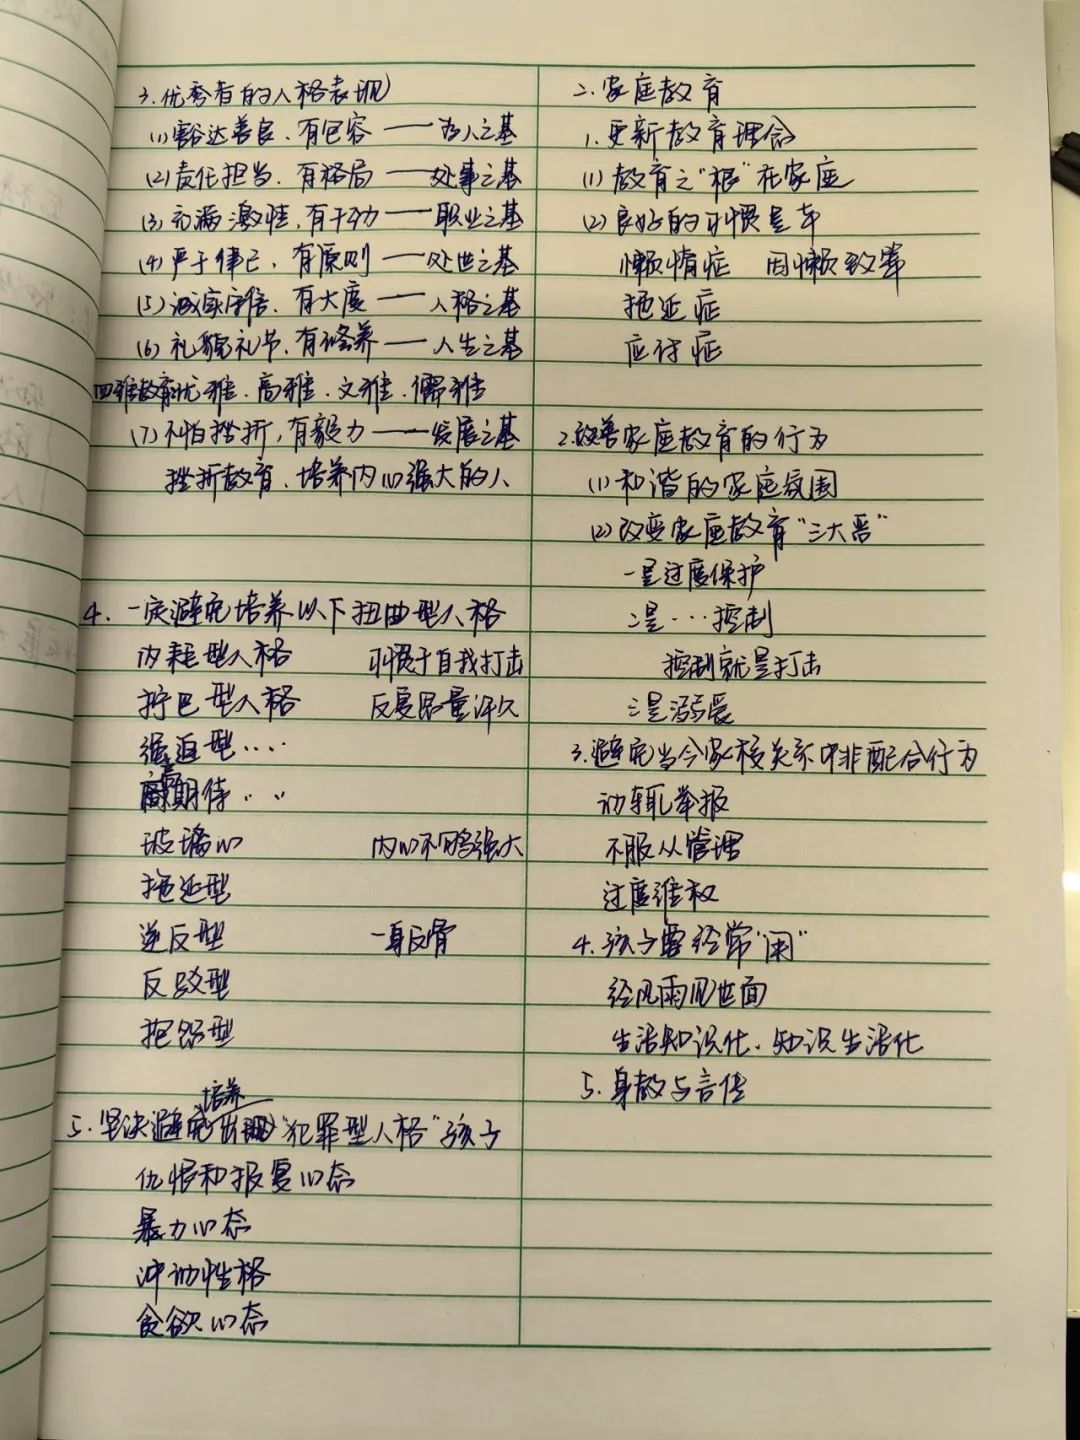 3.优秀者的人格表现
(1)豁达善良、有包容——为人之基
(2)责任担当、有格局——处事之基
(3)充满激情,有干劲——职业之基
(4)严于律己、有原则——处世之基
(5)诚实守信、有大度——人格之基
(6)礼貌礼节、有修养——人生之基
四雅教育优雅、高雅、文雅、儒雅
(7)不怕挫折,有毅力——发展之基
挫折教育、培养内心强大的人
4.一定避免培养以下扭曲型人格
内耗型人格 习惯于自我打击
拧巴型人格 反复思量许久
强迫型....
高期待...
玻璃心 内心不够强大
拖延型
逆反型 一身反骨
反驳型
抱怨型
培养
5.坚决避免出现"犯罪型人格"孩子
仇恨和报复心态
暴力心态
冲动性格
贪欲心态
二、家庭教育
1.更新教育理念
(1)教育之"根"在家庭
(2)良好的习惯是车
懒惰症 因懒致笨
拖延症
应付症
2.改善家庭教育的行为
(1)和谐的家庭氛围
(2)改变家庭教育"三大恶"
一是过度保护
二是...控制
控制就是打击
三是溺爱
3.避免当今家校关系中非配合行为
动辄举报
不服从管理
过度维权
4.孩子要经常"闲"
经风雨见世面
生活知识化、知识生活化
5.身教与言传